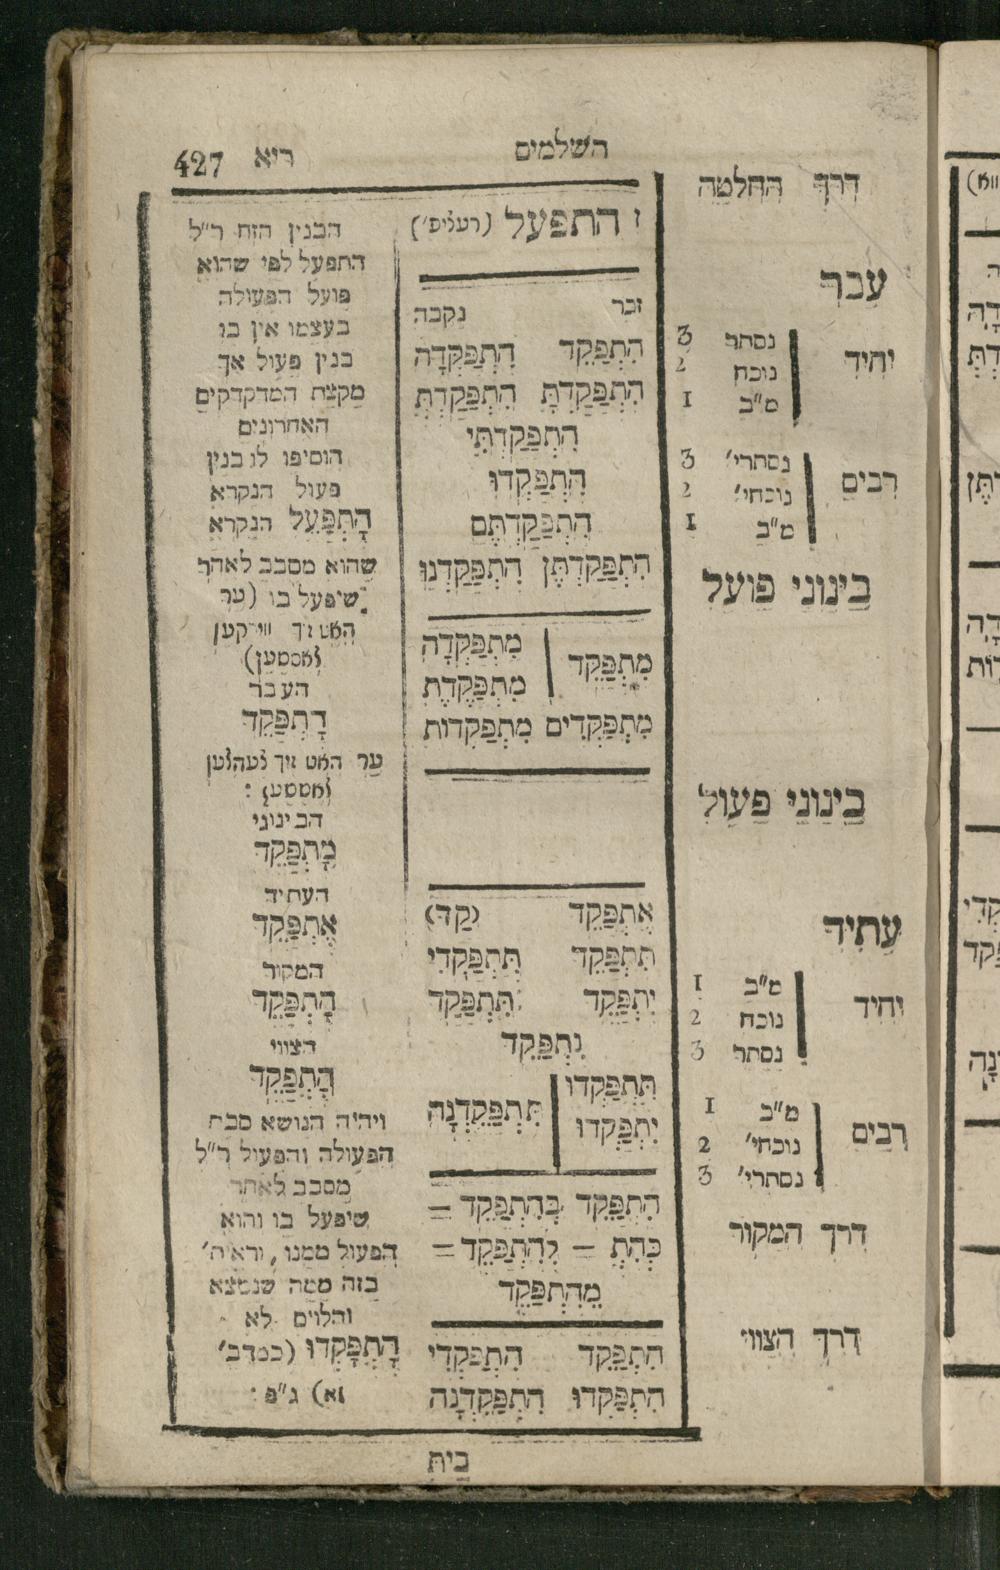 השלמים ריא 427
דרך החלטה
עבר
יחיד
נסתר 3
נוכח 2
מ"ב 1
רבים
נסתרי' 3
נוכחי' 2
מ"ב 1
בינוני פועל
בינוני פעול
עתיד
יחיד
מ"ב 1
נוכח 2
נסתר 3
רבים
מ"ב 1
נוכחי' 2
נסתרי' 3
דרך המקור
דרך הצווי
ז התפעל
זכר נקבה
הִתְפַּקֵּד הִתְפַּקְּדָה
הִתְפַּקַּדְתָּ הִתְפַּקַּדְתְּ
הִתְפַּקַּדְתִּי
הִתְפַּקְּדוּ
הִתְפַּקַּדְתֶּם
הִתְפַּקַּדְתֶּן הִתְפַּקַּדְנוּ
מִתְפַּקֵּד
מִתְפַּקְּדָה
מִתְפַּקֶּדֶת
מִתְפַּקְּדִים מִתְפַּקְּדוֹת
אֶתְפַּקֵּד (קַד)
תִּתְפַּקֵּד תִּתְפַּקְּדִי
יִתְפַּקֵּד תִּתְפַּקֵּד
נִתְפַּקֵּד
תִּתְפַּקְּדוּ
יִתְפַּקְּדוּ
תִּתְפַּקֵּדְנָה
הִתְפַּקֵּד בְּהִתְפַּקֵּד =
כְּהִתְ = לְהִתְפַּקֵּד =
מֵהִתְפַּקֵּד
הִתְפַּקֵּד הִתְפַּקְּדִי
הִתְפַּקְּדוּ הִתְפַּקֵּדְנָה
הבנין הזה ר"ל
התפעל לפי שהוא
פועל הפעולה
בעצמו אין בו
בנין פעול אך
מקצת המדקדקים
האחרונים
הוסיפו לו בנין
פעול הנקרא
הָתְפַּעֵל הנקרא
שהוא מסבב לאחר
שיפעל בו (ער
האט זיך
העבר
הָתְפַּקֵּד
ער האט זיך
הבינוני
מָתְפַּקֵּד
העתיד
אָתְפַּקֵּד
המקור
הָתְפַּקֵּד
הצווי
הָתְפַּקֵּד
ויהיה הנושא סבת
הפעולה והפעול ר"ל
מסבב לאחר
שיפעל בו והוא
הפעול ממנו, וראית'
בזה ממה שנמצא
והלוים לא
הָתְפָּקְדוּ (במדב'
א) ג"פ:
בית